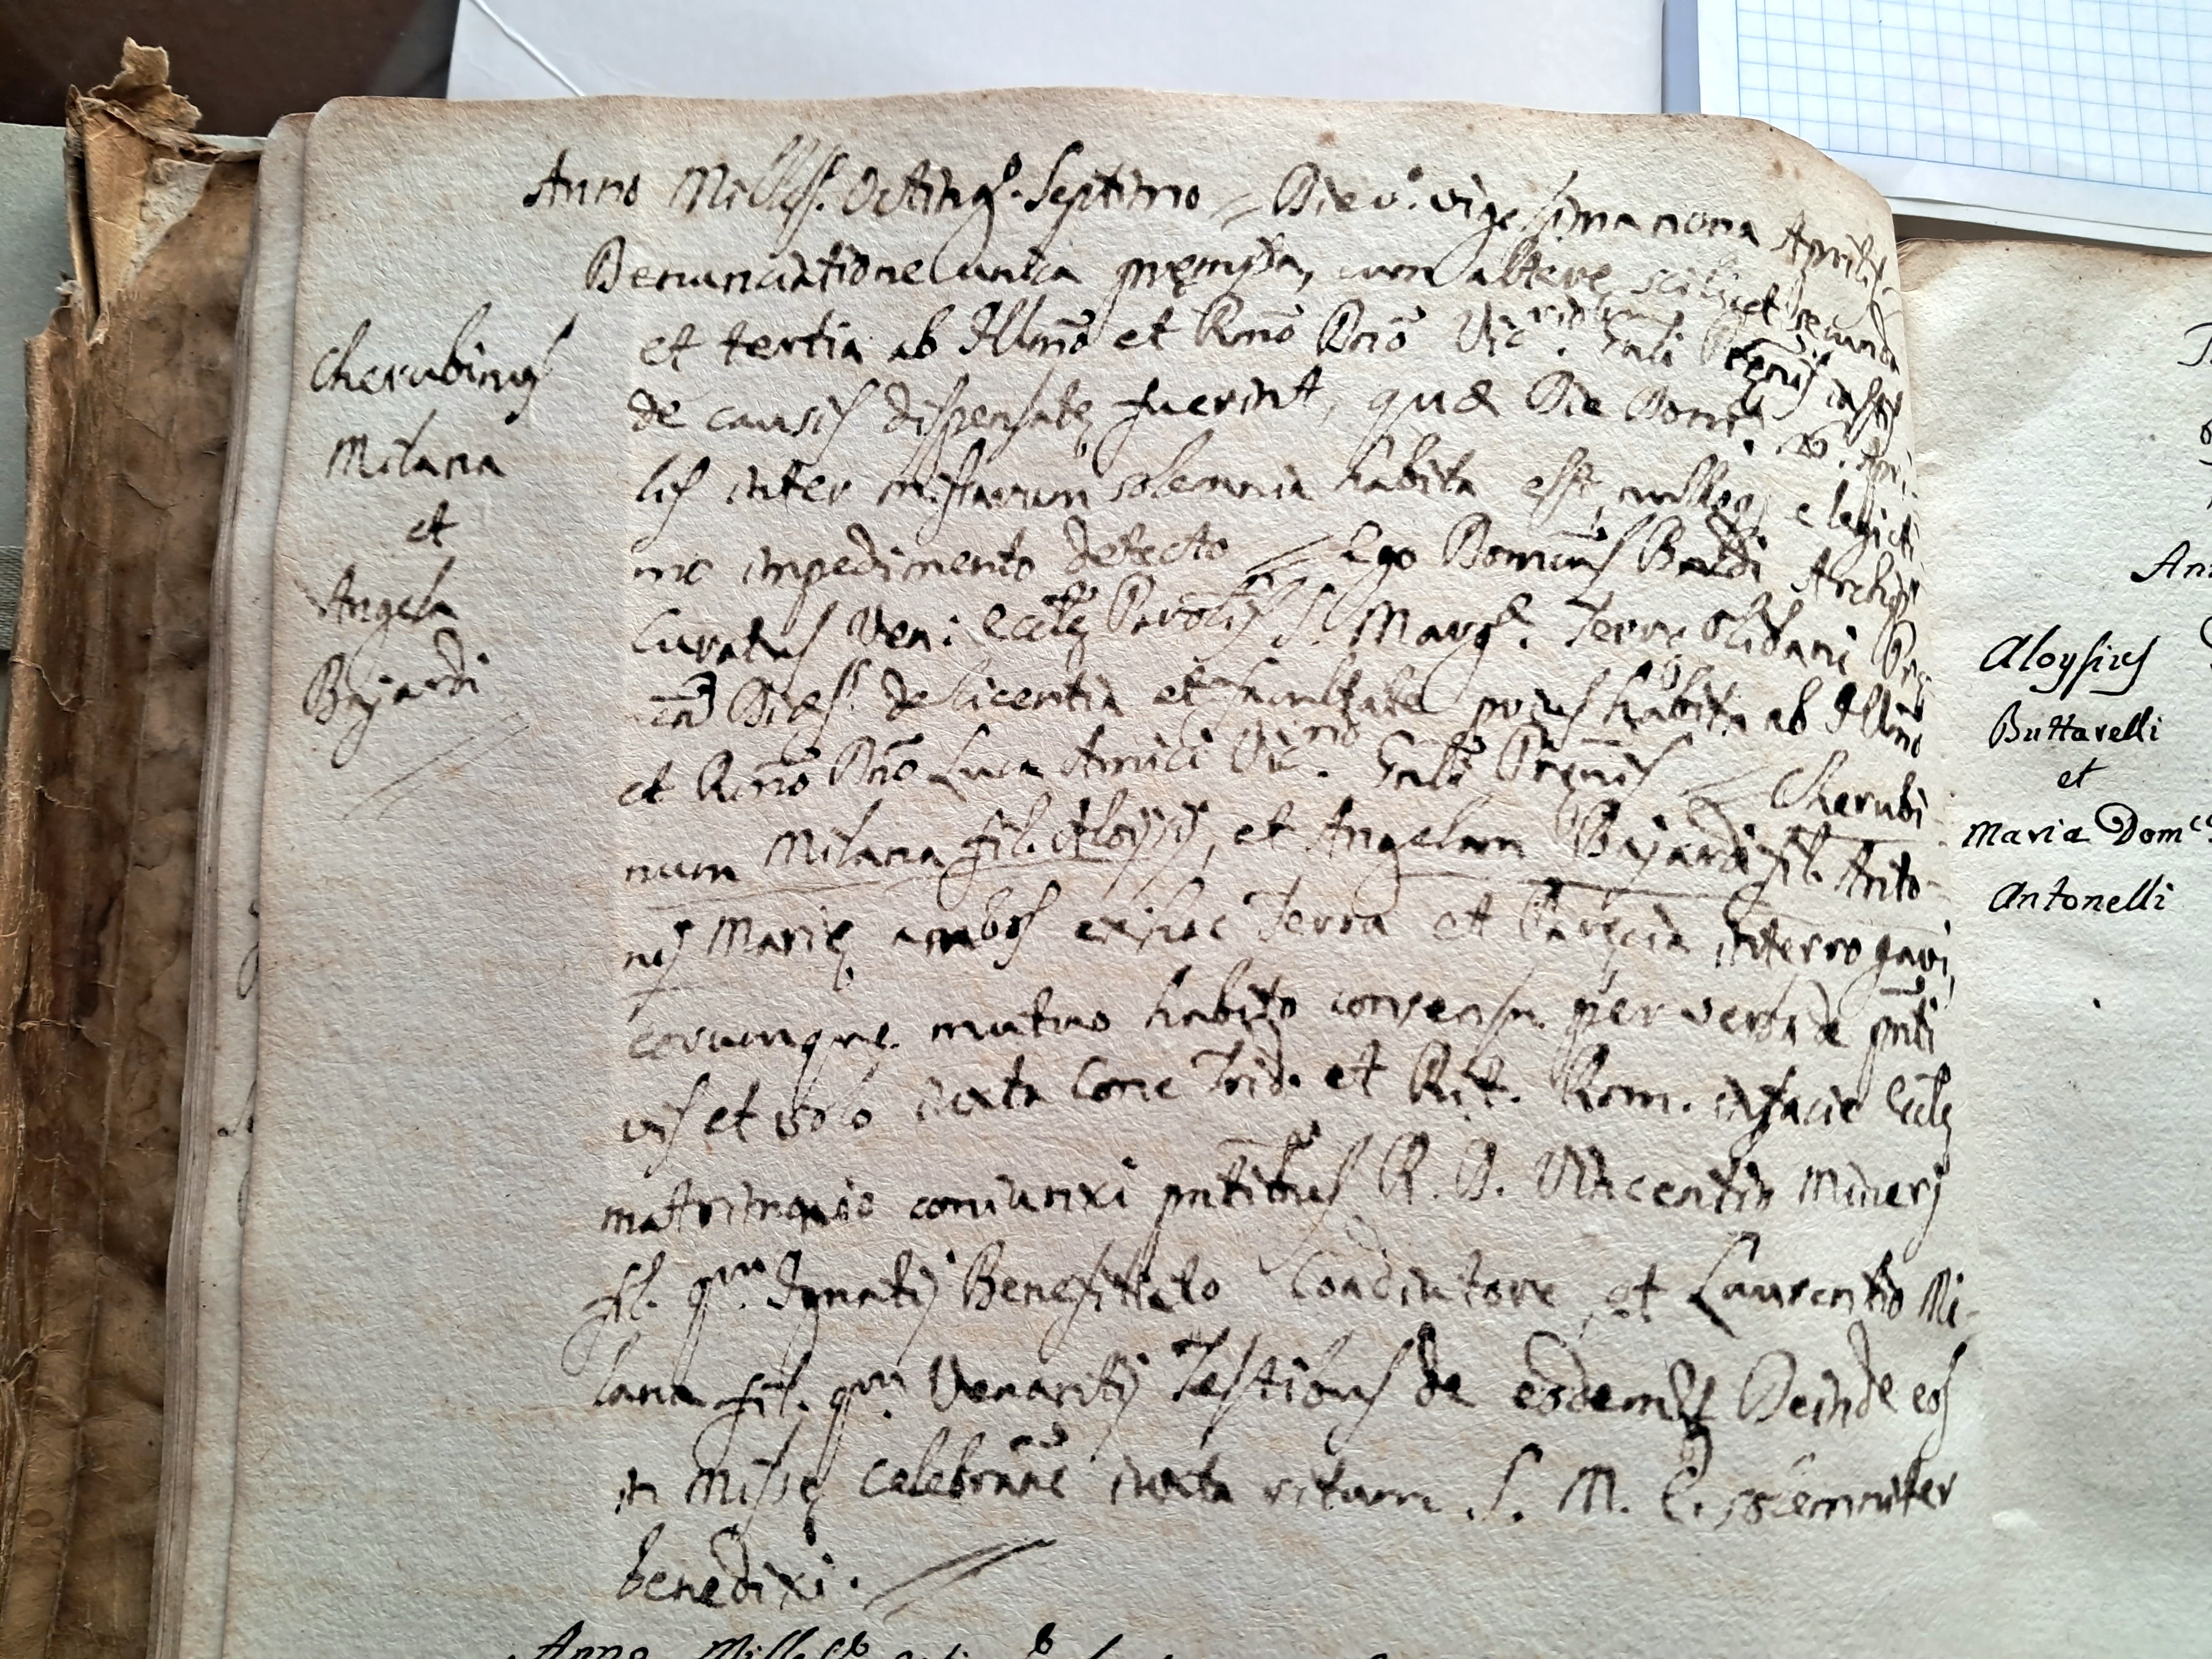 Anno Milless.º Octing.º Septimo = Die v.º vigesimanona Aprilis
Denunciatione unica premissa, cum altere, scilicet secunda
et tertia ab Illmō et Rmō Dnō Vic.rio Gnli
de causis dispensate fuerint, quæ Die Domca. 26. Apri,
lis inter missarum solemnia habita est, nulloq; e legiti
mo impedimento detecto = Ego Domcus Baldi Archip.
Curatus Ven: Eccle Parolis S. Marg.e Terre
Dices. de licentia et facultate prius habita ab Illmō
et Rmō Dnō Luca Amici Vic.rio Gnli = Cherubi
num Milana fil. Aloysij, et Angelam Bajardi fil. Anto-
nij Marie ambos ex hac Terra et Parecia interrogavi,
eorumque mutuo habito consensu per verba de pnti
vis et volo iuxta Conc Trid. et Rit. Rom. in facie Eccle
matrimonio coniunxi pntibus R. D. Vincentio Minerj
fil. qm. Ignatij Benefitiato Coadiutore, et Laurentio Mi-
lana fil. qm. Venantij Testibus de eodem Deinde eos
in Misse celebrane iuxta ritum S. M. E. solemniter
benedixi. =
Cherubinus
Milana
et
Angela
Bajardi
Aloysius
Buttarelli
et
Maria Dom.ca
Antonelli